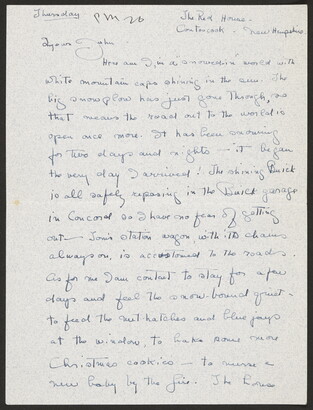 Thursday
The Red House.
Contoocook. New Hampshire
Dear John
Here am I, in a snowedin world with
white mountain caps shining in the sun. The
big snowplow has just gone through, so
that means the road out to the world is
open once more. It has been snowing
for two days and nights - it began
the very day I arrived! The shining Buick
is all safely reposing in the Buick garage
in Concord so I have no fear of getting
out - station wagon, with its chains
always on, is accustomed to the roads.
As for me I am content to stay for a few
days and feel the snow-bound quiet -
to feed the nut-hatches and blue jays
at the window, to bake some more
Christmas cookies - to nurse a
new baby by the fire. The house